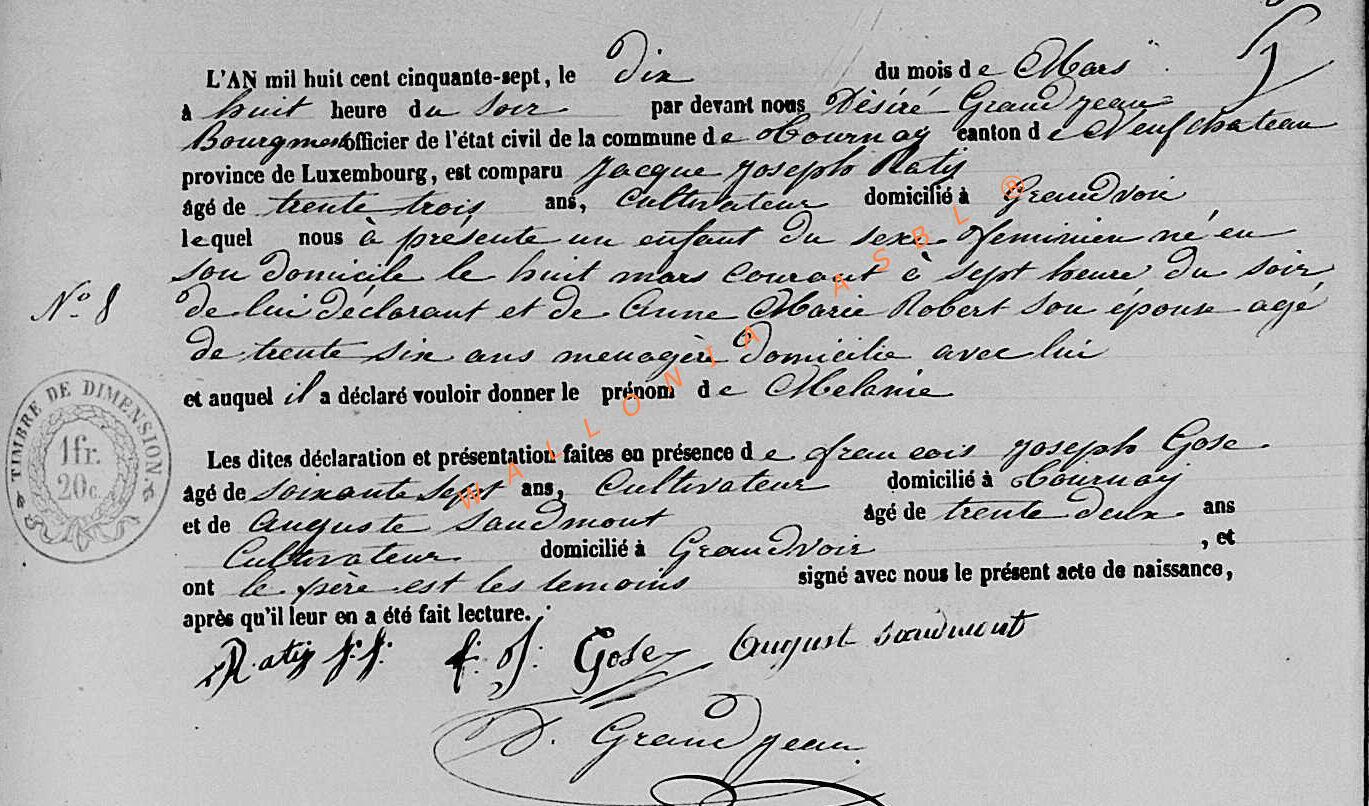 L'AN mil huit cent cinquante-sept, le Dix du mois de Mars
à huit heure du soir par devant nous Désiré Grandjean
Bourgmest officier de l'état civil de la commune de Tournay canton de Neufchateau
province de Luxembourg, est comparu Jacque Joseph Ratis
âgé de trente trois ans, Cultivateur domicilié à Grandvoir
lequel nous à présente un enfant du sexe feminien né en
son domicile le huit mars courant à sept heure du soir
N° 8 de lui déclarant et de Anne Marie Robert son épouse agé
de trente six ans menagère domicilie avec lui
et auquel il a déclaré vouloir donner le prénom de Melanie
TIMBRE DE DIMENSION
1 fr.
20 c.
Les dites déclaration et présentation faites en présence de francois Joseph Gose
âgé de soixante sept ans, Cultivateur domicilié à Tournay
et de Auguste Saudmont âgé de trente deux ans
Cultivateur domicilié à Grandvoir , et
ont le père est les temoins signé avec nous le présent acte de naissance,
après qu'il leur en a été fait lecture.
Ratis j. j. f. J. Gose August Saudmont
D. Grandjean
WALLONIA ASBL ®